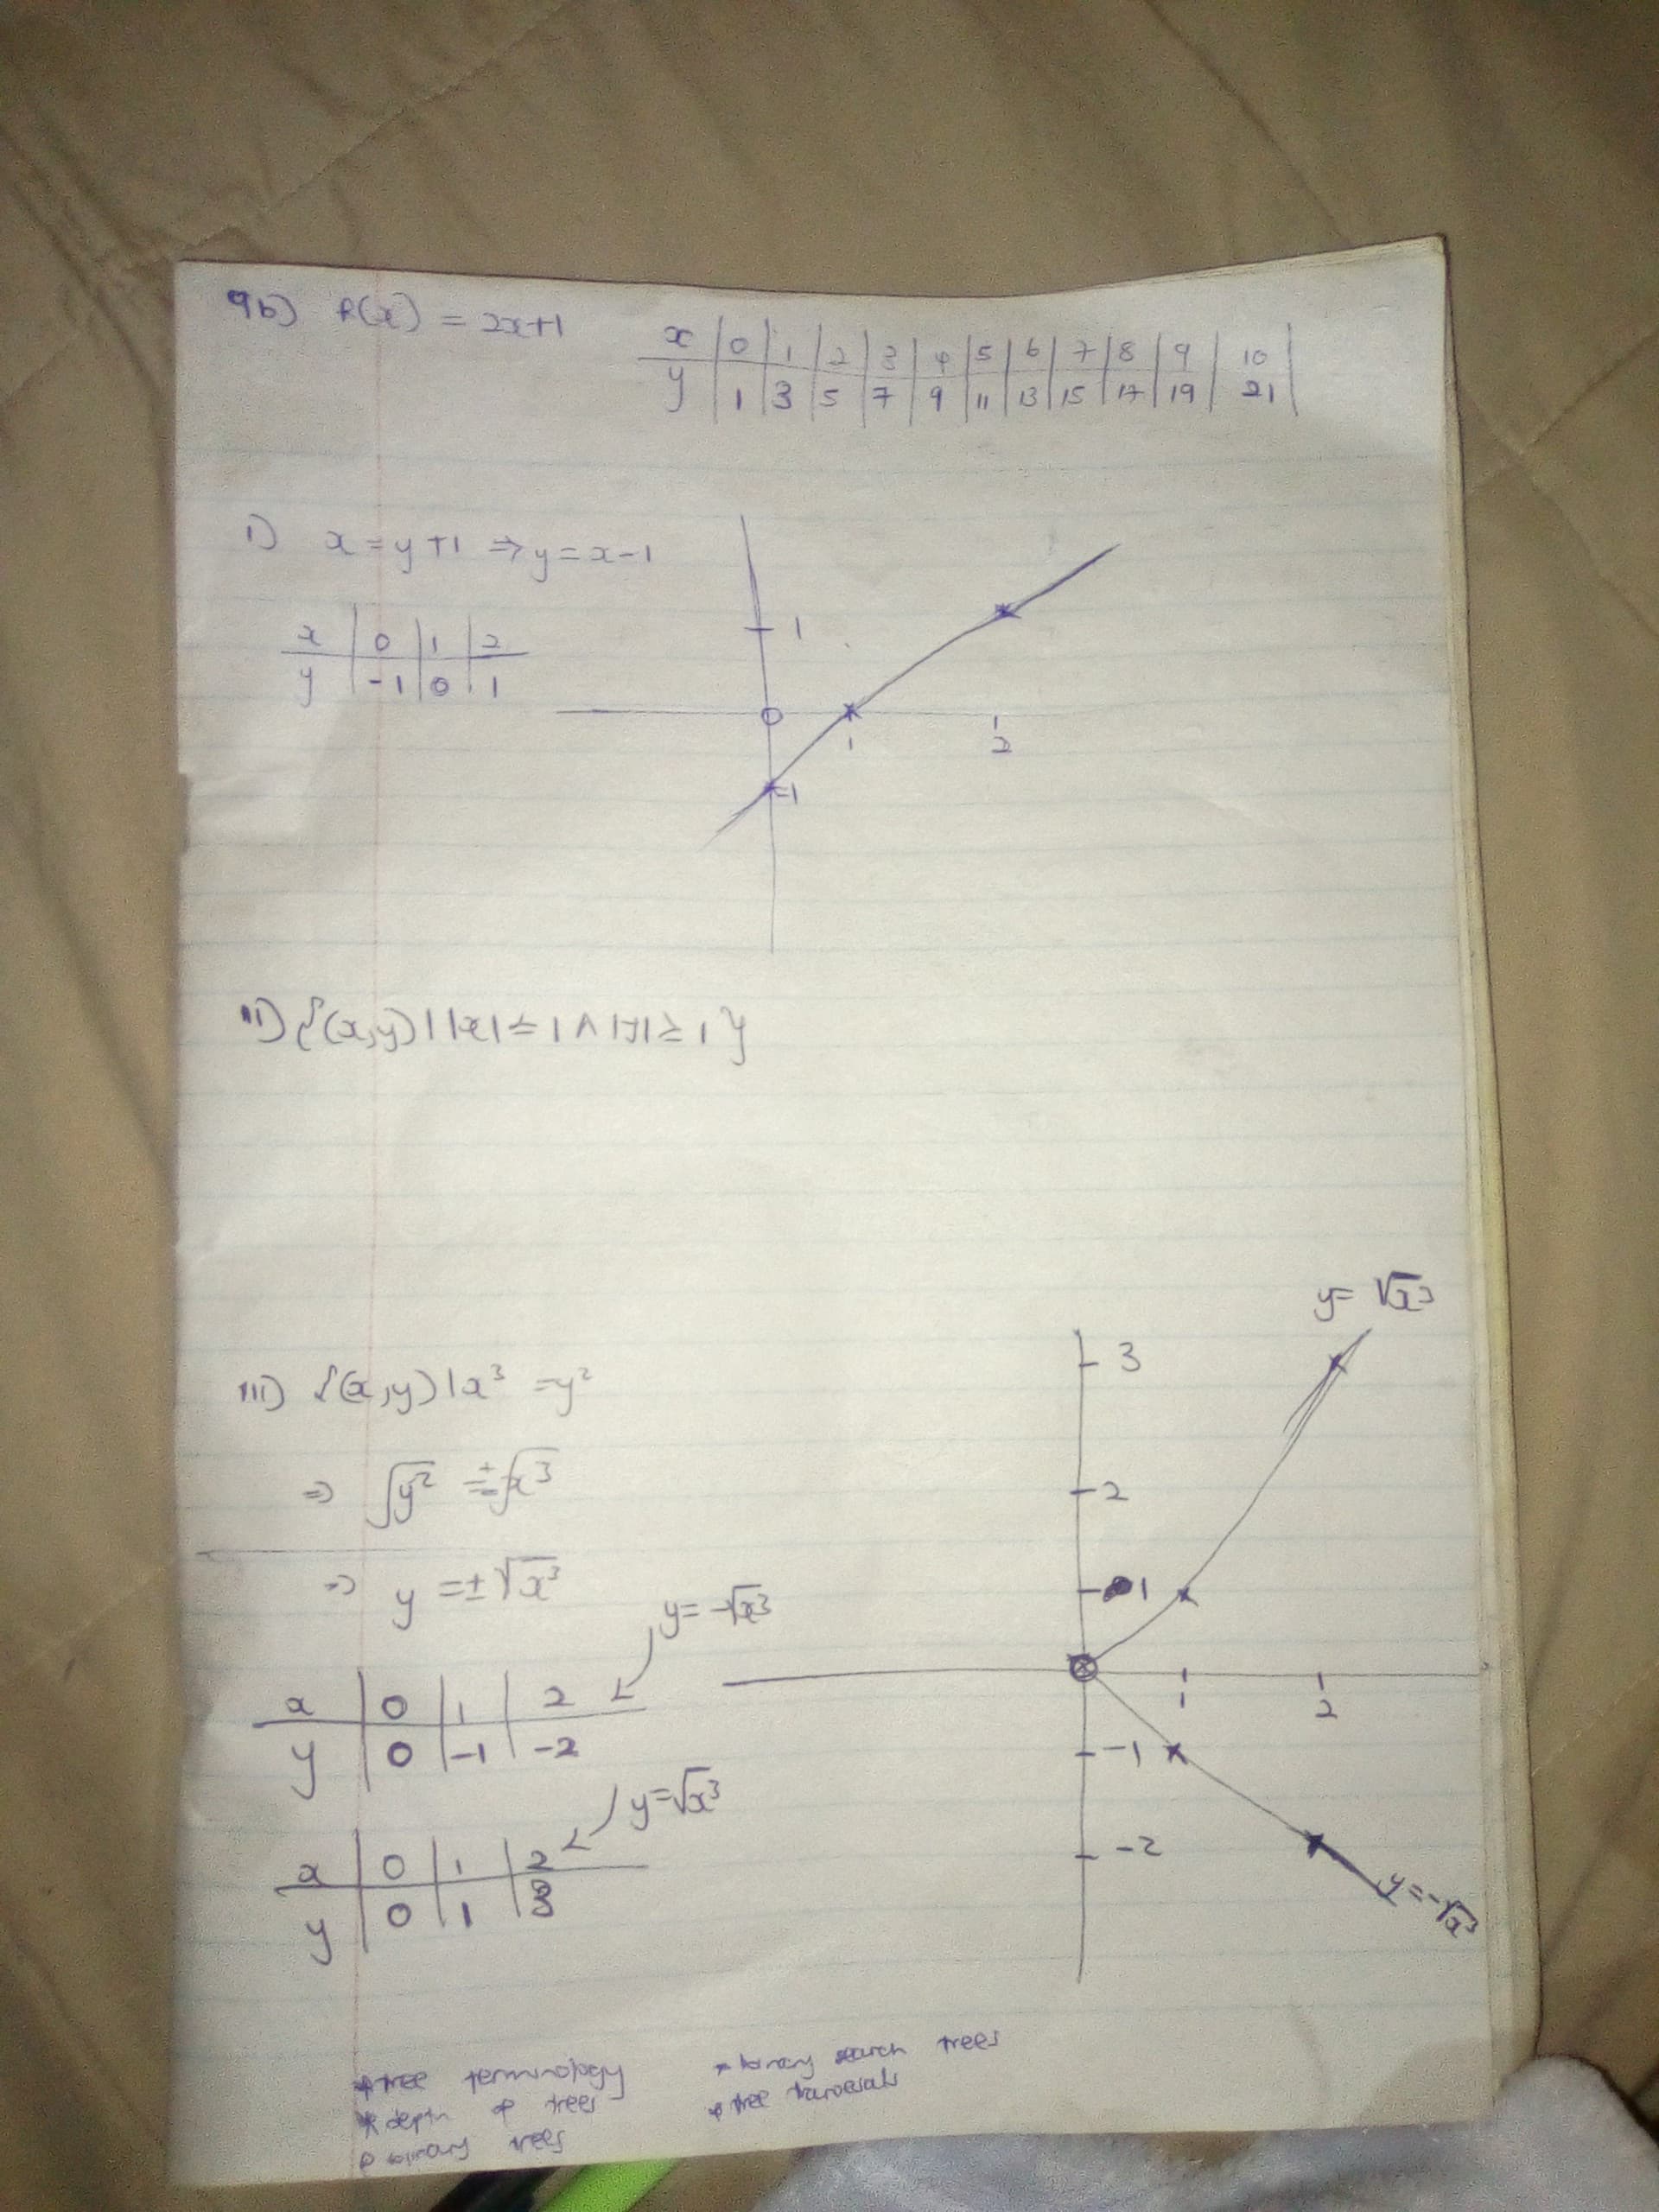 9b) f(x) = 2x+1
x | 0 | 1 | 2 | 3 | 4 | 5 | 6 | 7 | 8 | 9 | 10 |
y | 1 | 3 | 5 | 7 | 9 | 11 | 13 | 15 | 17 | 19 | 21 |
i) x = y+1 ⇒ y = x-1
x | 0 | 1 | 2
y | -1 | 0 | 1
1
0
1
2
-1
ii) {(x,y) | |x| ≤ 1 ∧ |y| ≥ 1}
iii) {(x,y) | x³ = y²
⇒ √y² = ±√x³
⇒ y = ±√x³
y = -√x³
x | 0 | 1 | 2
y | 0 | -1 | -2
y = √x³
x | 0 | 1 | 2
y | 0 | 1 | 3
y = √x³
3
2
1
1
2
-1
-2
y = -√x³
* tree terminology
* depth of trees
* binary trees
* binary search trees
* tree traversals